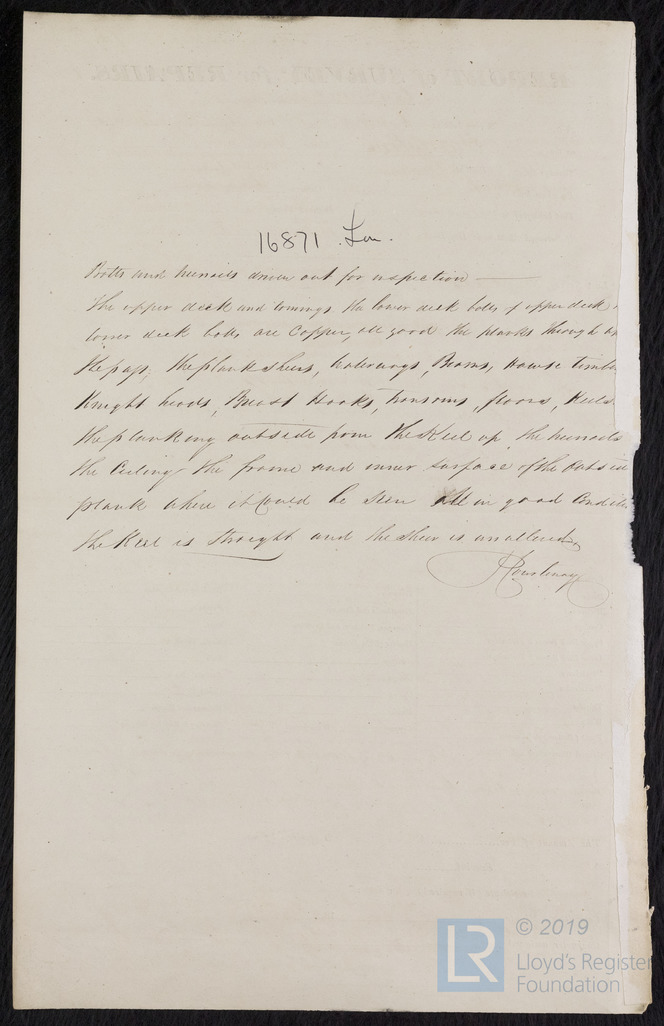 16871 Lon.
Bolts and treenails driven out for inspection
The upper deck and comings the lower deck bolts of upper deck
lower deck bolts are Copper, all good the planks through
the plank sheers, Waterways, Beams, hawse timb
Knight heads, Breast Hooks, transoms, floors, Keels
the planking outside from the Keel up, the treenails
the Ceiling the frame and inner surface of the outs
plank where it could be seen All in good Condit
the Keel is straight and the sheer is unaltered
© 2019
LR
Lloyd's Register
Foundation